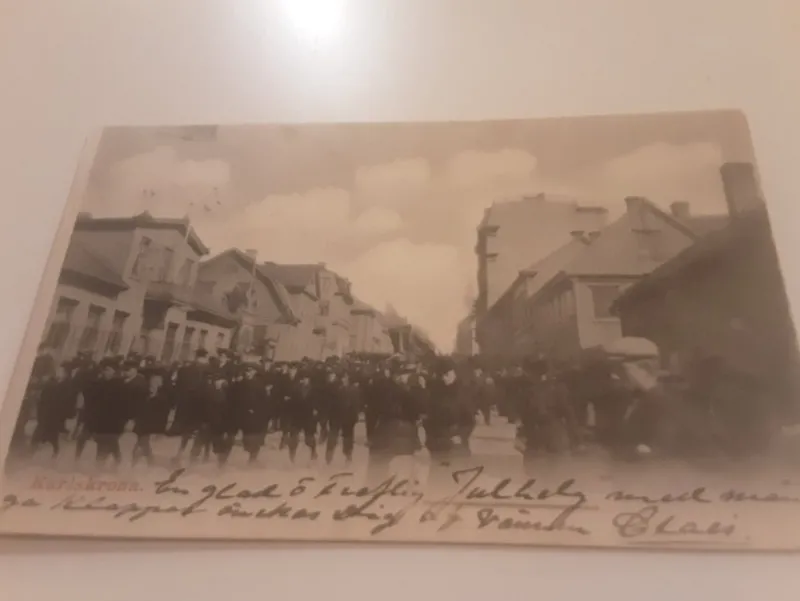 Karlskrona. En glad o treflig Julhelg med mån
ga klappar önskas Dig af vännen Claes.